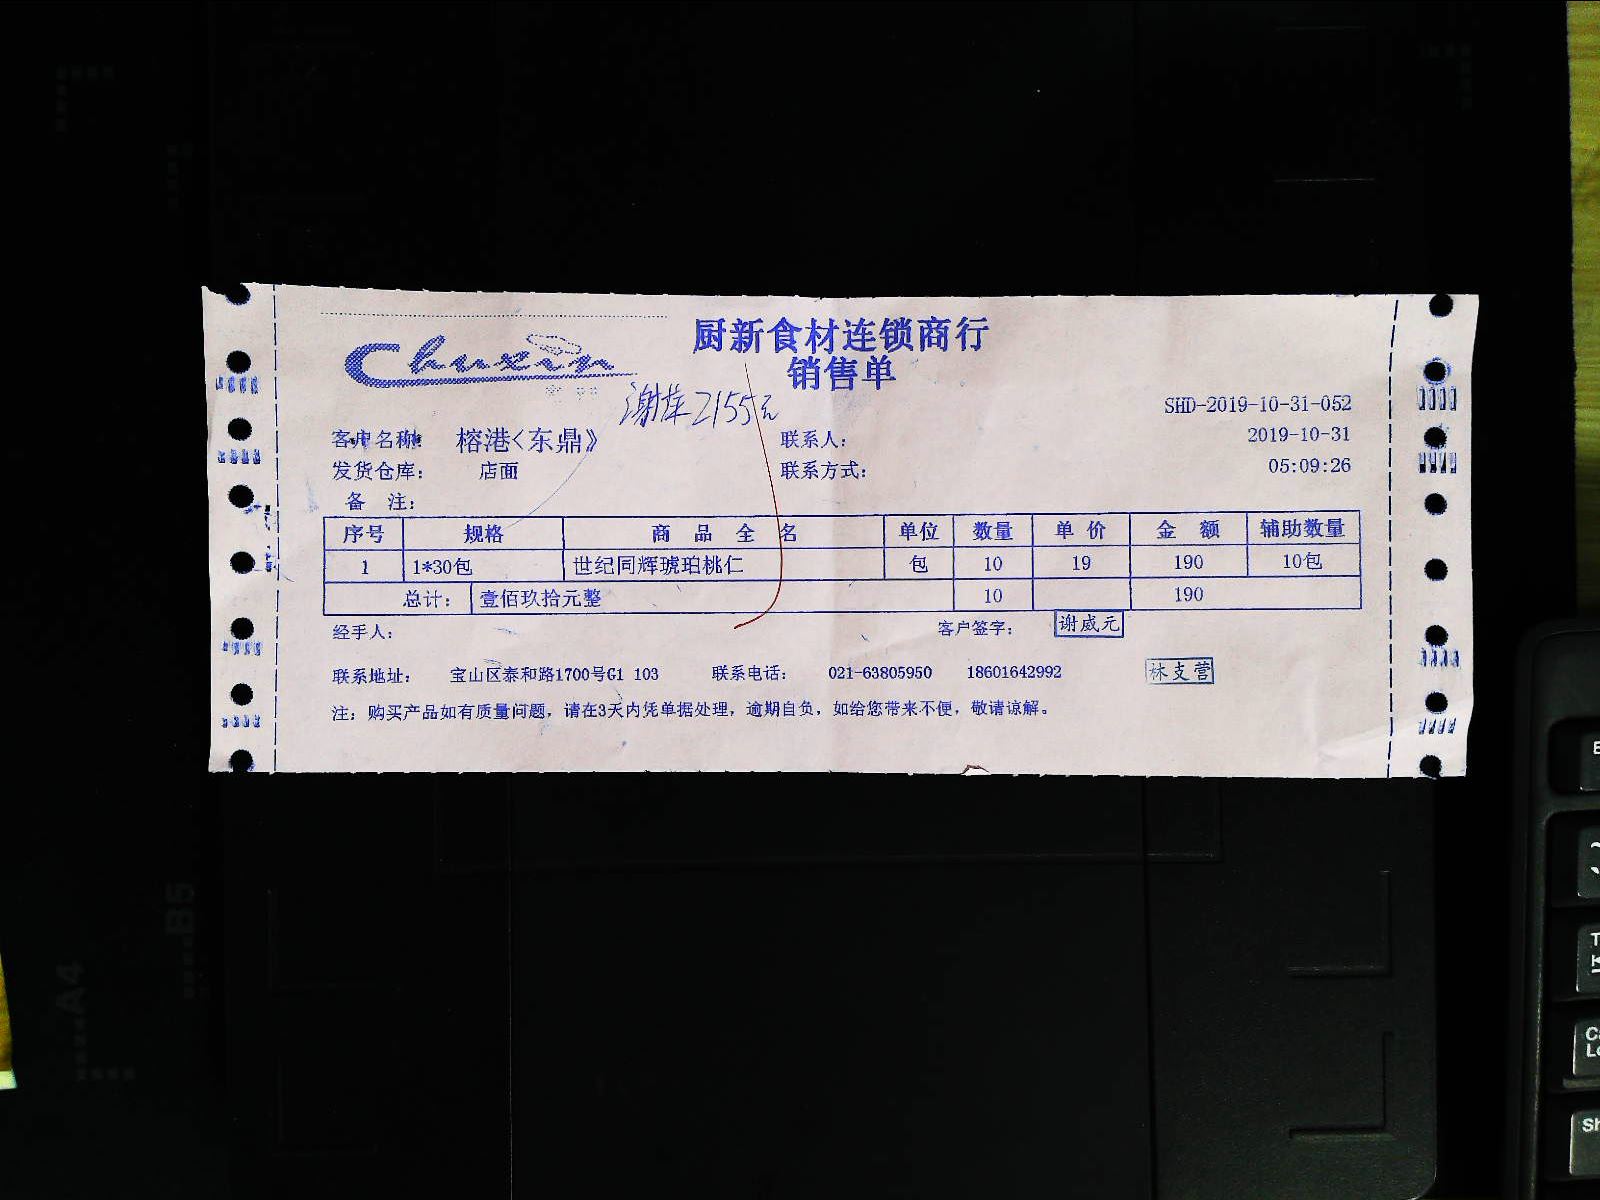 厨新食材连锁商行
Chuxin
销售单
2155元
SHD-2019-10-31-052
客户名称: 榕港<东鼎》 联系人: 2019-10-31
发货仓库: 店面 联系方式: 05:09:26
备 注:
序号 规格 商品全名 单位 数量 单价 金额 辅助数量
1 1*30包 世纪同辉琥珀桃仁 包 10 19 190 10包
总计: 壹佰玖拾元整 10 190
经手人: 客户签字: 谢威元
联系地址: 宝山区泰和路1700号G1 103 联系电话: 021-63805950 18601642992 林支营
注: 购买产品如有质量问题, 请在3天内凭单据处理, 逾期自负, 如给您带来不便, 敬请谅解。
B5
A4